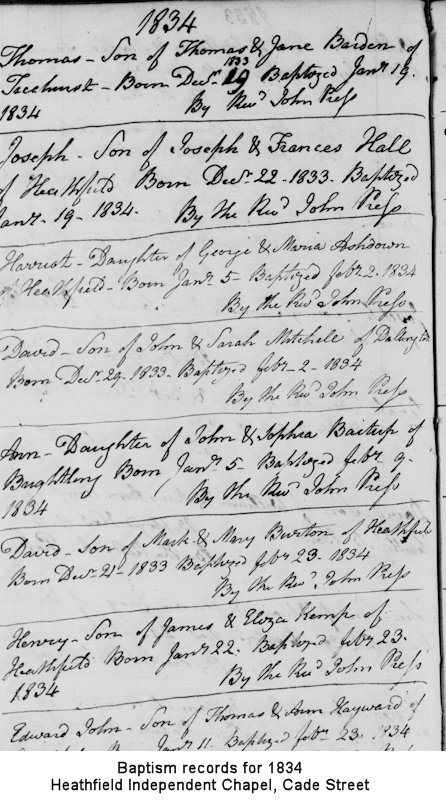 1834
Thomas - Son of Thomas & Jane Barden of
1833
Ticehurst - Born Decr. 19 Baptized Janr. 19.
1834 By Revd John Press
Joseph - Son of Joseph & Frances Hall
of Heathfield Born Decr. 22 - 1833. Baptized
Janr. 19 - 1834. By the Revd John Press
Harriot - Daughter of George & Maria Ashdown
Heathfield - Born Janr. 5 - Baptized Febr. 2 - 1834
By the Revd John Press
David - Son of John & Sarah Mitchell of Dallington
Born Decr. 29 - 1833 - Baptized Febr - 2 - 1834
By the Revd John Press
Ann - Daughter of John & Sophia of
Born Janr. 5 - Baptized Febr. 9 -
1834 By the Revd John Press
David - Son of Mark & Mary Burton of Heathfield
Born Decr - 21 - 1833 Baptized Febr 23 - 1834
By the Revd. John Press
Henry - Son of James & Eliza Kemp of
Heathfield Born Janr. 22. Baptized Febr 23.
1834 By the Revd John Press
Edward John - Son of Thomas & Ann Hayward of
Janr. 11. Baptized Febr. 23. 1834
Baptism records for 1834
Heathfield Independent Chapel, Cade Street